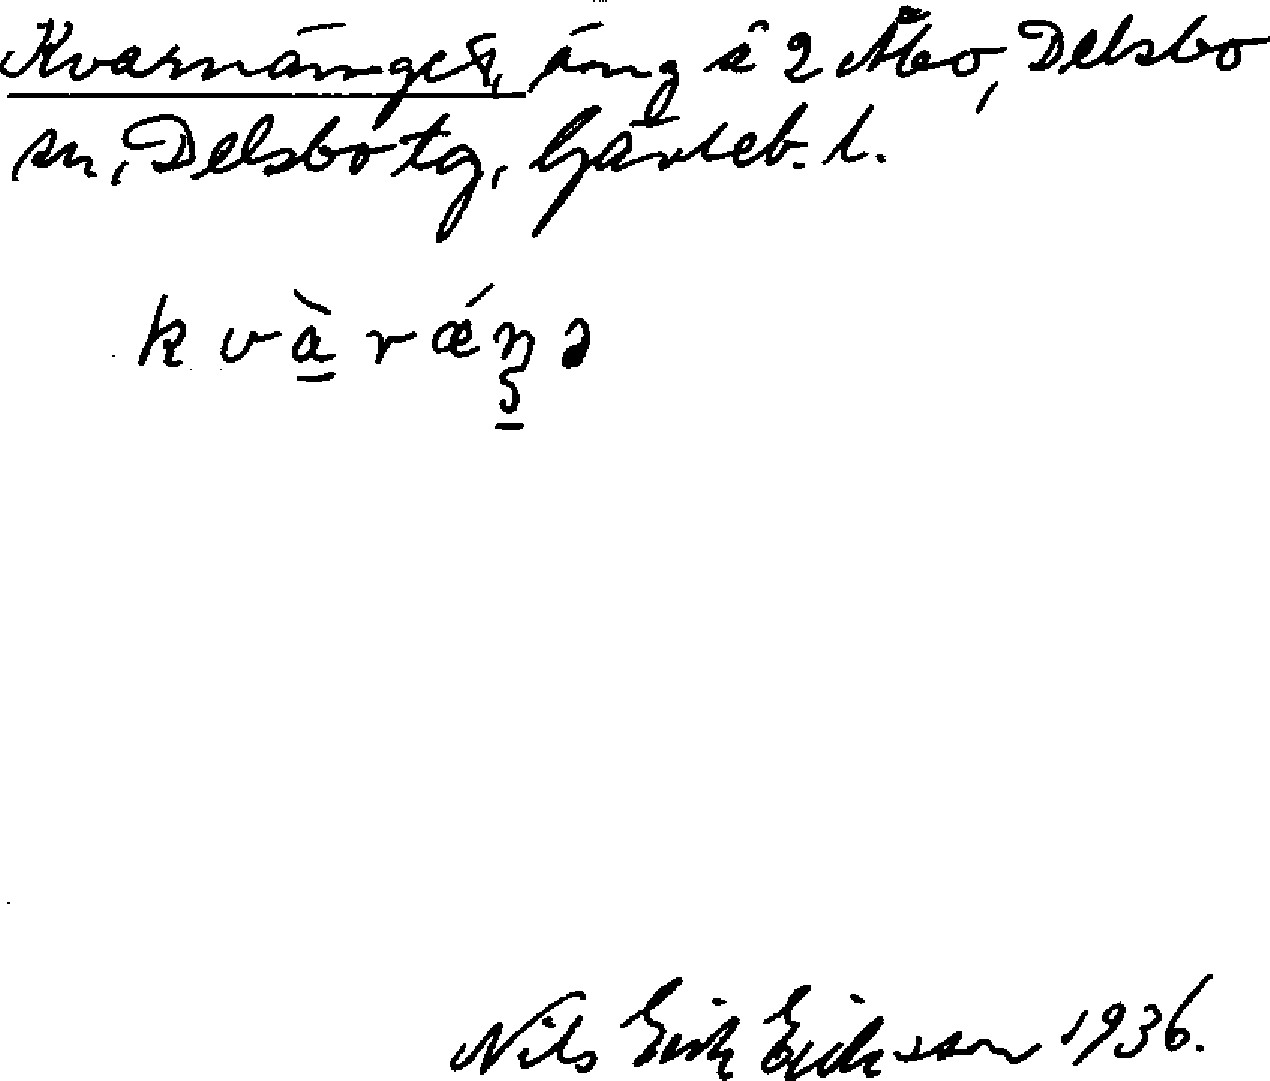 Kvarnänget, äng å 2 Åbo, Delsbo
sn, Delsbo tg, Gävleb. l.
kvàrǽŋə
Nils Erik Eriksson 1936.